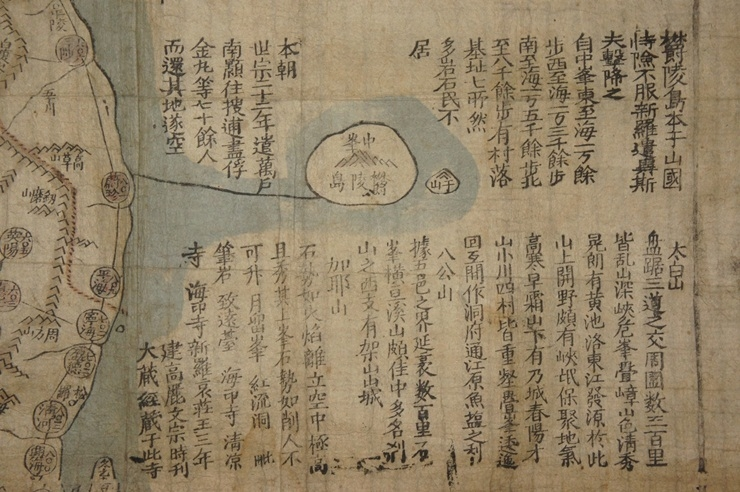 欝陵島本于山國
恃險不服新羅遣異斯
夫擊降之
自中峯東至海一万餘
步西至海一万三千餘步
南至海一万五千餘步北
至八千餘步有村落
基址七所然
多岩石民不
居
本朝
世宗二十二年遣萬戶
南顥往搜浦盡俘
金丸等七十餘人
而還其地遂空
中峯
欝陵島
于山
太白山
盤踞三道之交周圍數三百里
皆乱山深峽危峯疊嶂山色清秀
晃朗有黃池洛東江發源於此
山上開野頗有峽氓保聚地氣
高寒早霜山下有乃城春陽才
山小川四村皆重峦疊峯逶邐
回互開作洞府通江原魚塩之利
八公山
據五邑之界延袤數百里石
峯橫亘溪山頗佳中多名刹
山之西支有架山山城
加耶山
石勢如火焰離立空中極高
且秀其上峯石勢如削人不
可升 月留峯 紅流洞 毗
筆岩 致遠臺 海印寺 清凉
寺 海印寺新羅哀莊王三年
建高麗文宗時刊
大藏經藏于此寺
平海
寧海
周方山